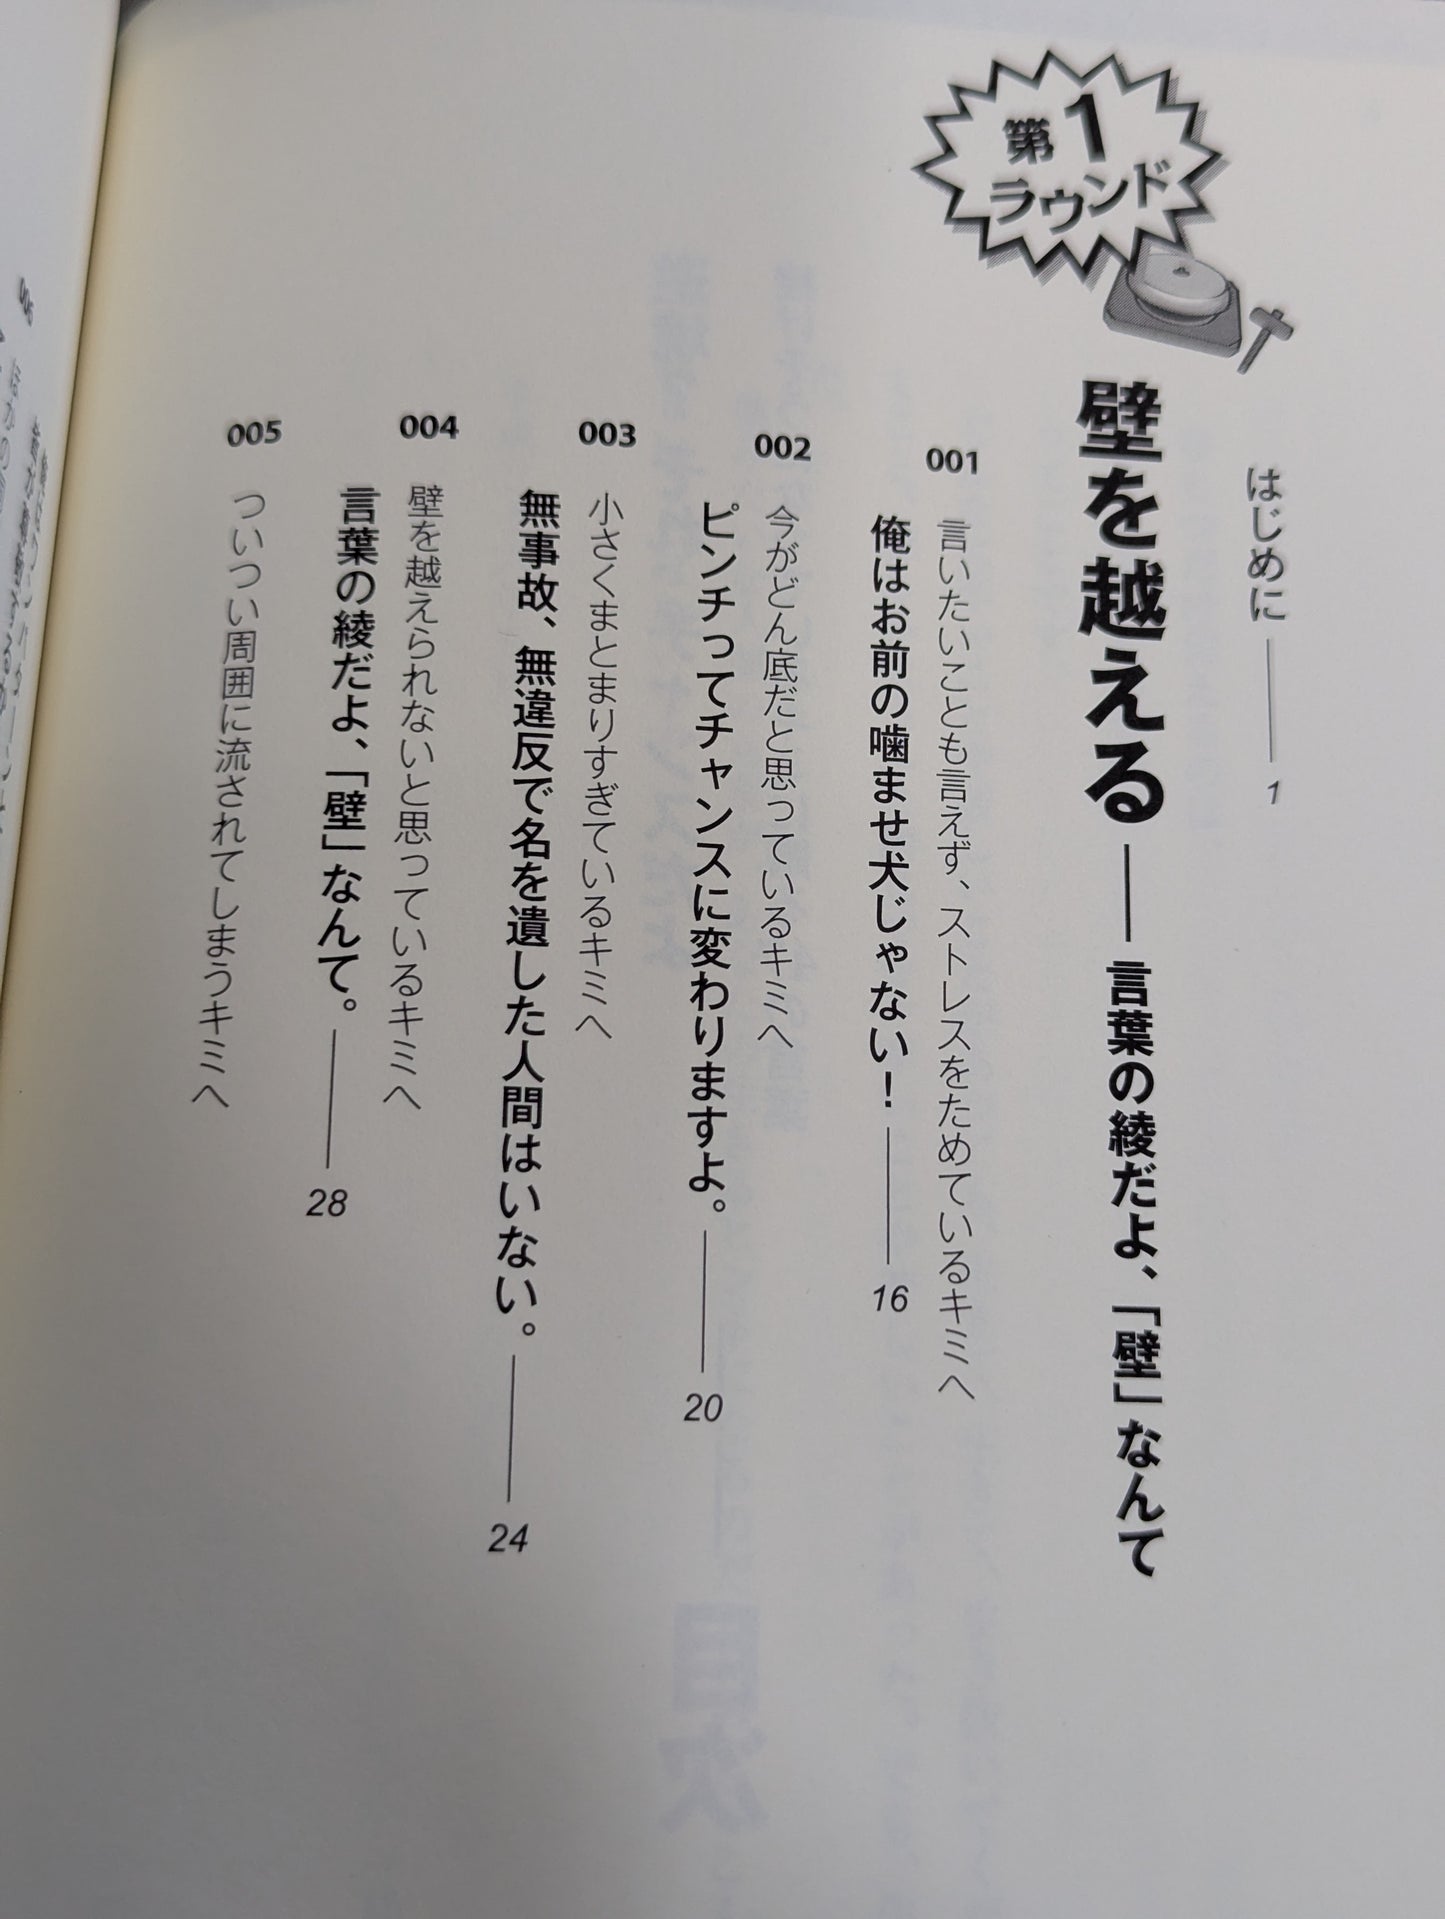 はじめに―― 1
第1
ラウンド
壁を越える――言葉の綾だよ、「壁」なんて
001
言いたいことも言えず、ストレスをためているキミへ
俺はお前の噛ませ犬じゃない！―― 16
002
今がどん底だと思っているキミへ
ピンチってチャンスに変わりますよ。―― 20
003
小さくまとまりすぎているキミへ
無事故、無違反で名を遺した人間はいない。―― 24
004
壁を越えられないと思っているキミへ
言葉の綾だよ、「壁」なんて。―― 28
005
ついつい周囲に流されてしまうキミへ
006
目次